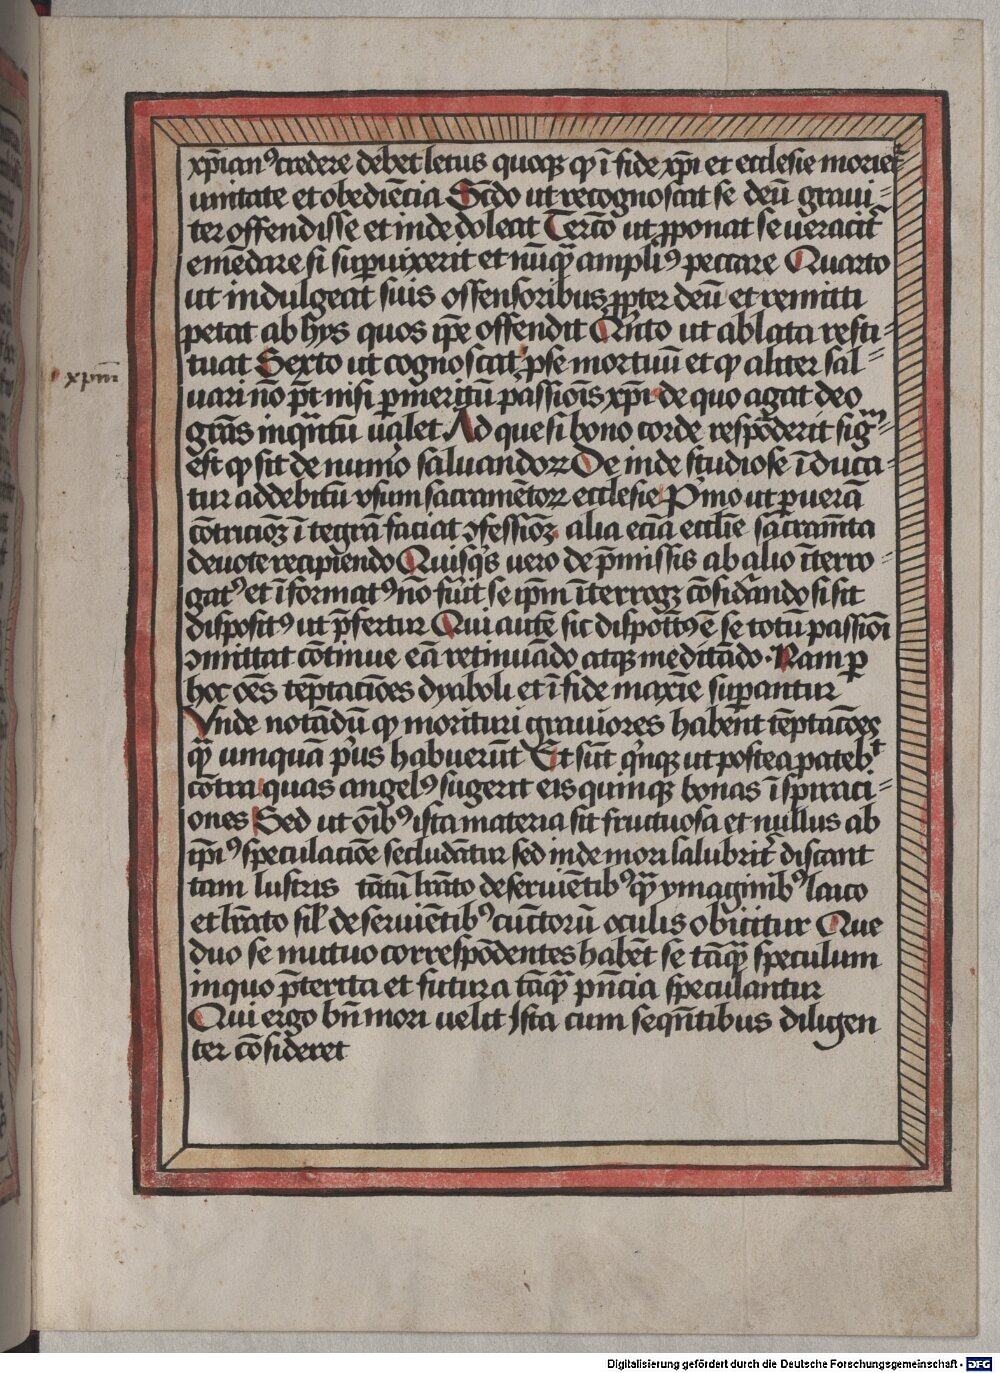 2
xp̄ian⁹ credere debet letus quoqꝫ qꝫ ī fide xp̄i et ecclesie moriet̄
unitate et obediēcia Scd̄o ut recognoscat se deū graui⸗
ter offendisse et inde doleat Terco̅ ut ꝓponat se ueracit̄
emēdare si suꝑuixerit et nūqȝ̄ ampli⁹ peccare Quarto
ut indulgeat suis offensoribus ꝓpter deū et remitti
petat ab hys quos ip̄e offendit Qiⁿto ut ablata resti⸗
tuat Sexto ut cognoscat xp̄m pro se mortuū et qꝫ aliter sal⸗
xpm̄
uari nō pt̄ nisi ꝑ meritū passiōis xp̄i de quo agat deo
grās inqn̄tū ualet Ad que si bono corde respōderit sigm̄
est qꝫ sit de numo̅ saluandoꝝ De inde studiose īduca⸗
tur ad debitū vsum sacramētoꝝ ecclesie Pⁱmo ut ꝑ uerā
cōtricioꝫ̄ ī tegrā faciat ꝯfessioꝫ̄ alia eciā ecclīe sacram̄ta
deuote recipiendo Quisqⁱs uero de p̄missis ab alio īterro⸗
gat⁹ et īformat⁹ nō fuit̄ se ip̄m īterrogꝫ cōsiderādo si sit
disposit⁹ ut p̄fertur Qui autē sic dispoit⁹ ē se totū passiōi
ꝯmittat cōtinue eā retinuādo atqꝫ meditādo · Nam ꝑ
hoc oēs tēptacioēs dyaboli et ī fide maxīe suꝑantur
Vnde notādū qꝫ morituri grauiores habent tēptacōes
qȝ̄ umquā pⁱus habuerūt Et sūt qⁱnqꝫ ut postea patebᵗ
cōtra quas angel⁹ sugerit eis quinqꝫ bonas īspiraci⸗
ones Sed ut oīb⁹ ista materia sit fructuosa et nullus ab
ip̄i⁹ speculacioē secludātur sed inde mori salubrit̄ discant
tam lustris tātū lr̄ato deseruiētib⁹ qȝ̄ ymaginib⁹ laico
et lr̄ato sil̄ deseruiētib⁹ cūctorū oculis obⁱicitur Que
duo se mutuo correspōdentes habēt se tāqȝ̄ speculum
in quo p̄terita et futura tāqȝ̄ pn̄cia speculantur
Qui ergo bn̄ mori uelit Ista cum seqn̄tibus diligen
ter cōsideret
Digitalisierung gefördert durch die Deutsche Forschungsgemeinschaft - DFG